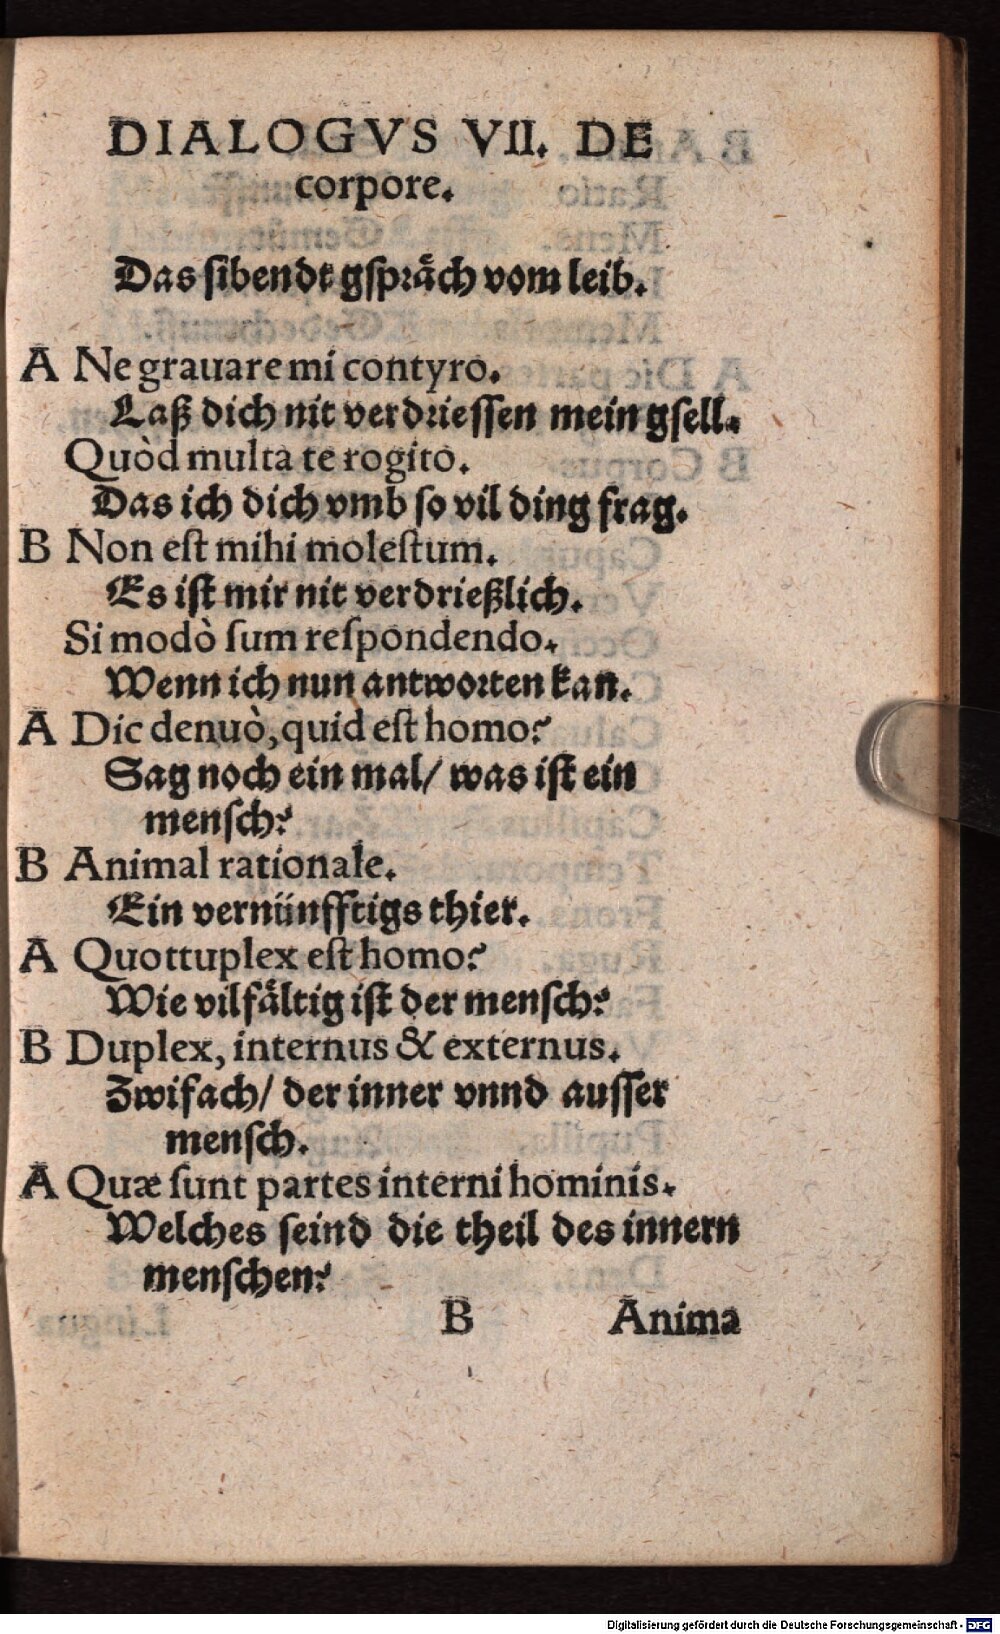 DIALOGVS VII. DE
corpore.
Das sibendt gspraͤch vom leib.
A Ne grauare mi contyro.
Laß dich nit verdriessen mein gsell.
Quòd multa te rogito.
Das ich dich vmb so vil ding frag.
B Non est mihi molestum.
Es ist mir nit verdrießlich.
Si modò sum respondendo.
Wenn ich nun antworten kan.
A Dic denuò, quid est homo?
Sag noch ein mal/ was ist ein
mensch?
B Animal rationale.
Ein vernünfftigs thier.
A Quottuplex est homo?
Wie vilfaͤltig ist der mensch?
B Duplex, internus & externus.
Zwifach/ der inner vnnd ausser
mensch.
A Quæ sunt partes interni hominis.
Welches seind die theil des innern
menschen?
B Anima
Digitalisierung gefördert durch die Deutsche Forschungsgemeinschaft - DFG